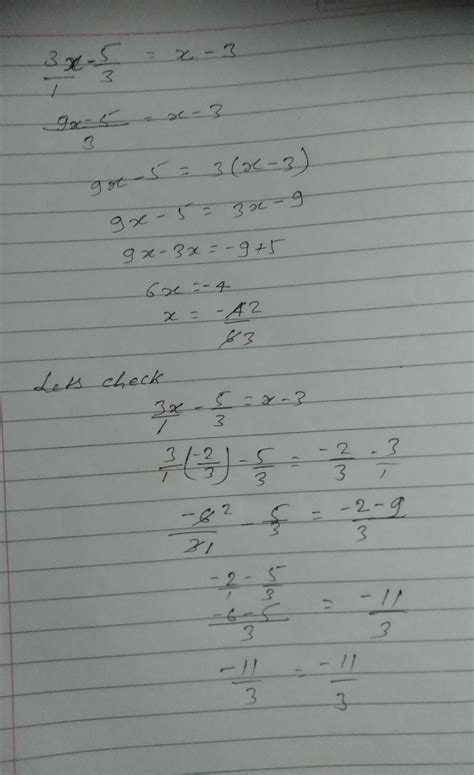 3x/1 - 5/3 = x - 3
9x-5/3 = x - 3
9x - 5 = 3(x - 3)
9x - 5 = 3x - 9
9x - 3x = -9+5
6x = -4
x = -4 2/6 3
Lets check
3x/1 - 5/3 = x - 3
3/1 (-2/3) - 5/3 = -2/3 - 3/1
-6 2/3 1 - 5/3 = -2-9/3
-2/1 - 5/3
-6-5/3 = -11/3
-11/3 = -11/3